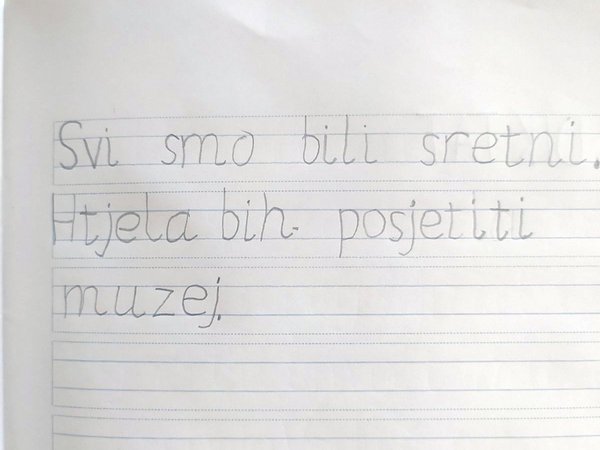 Svi smo bili sretni.
Htjela bih posjetiti
muzej.